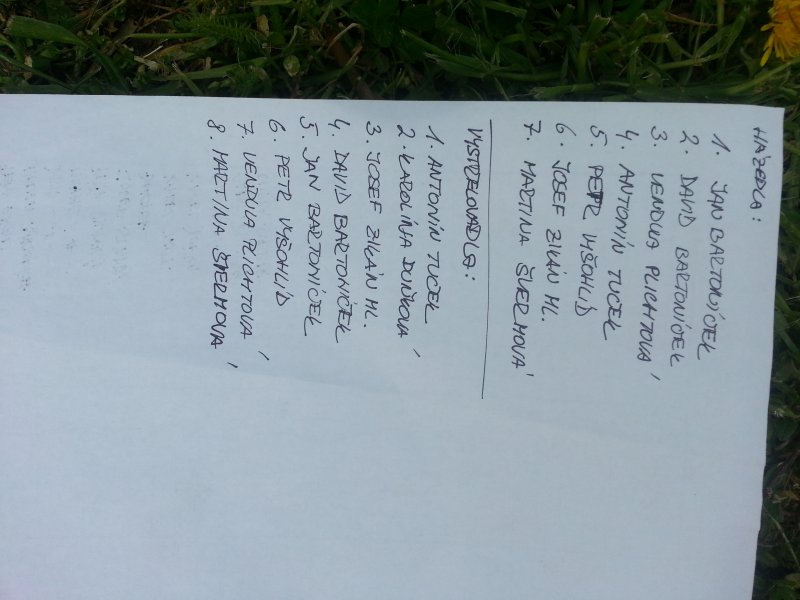 HÁZEDLA:
1. JAN BARTONÍČEK
2. DAVID BARTONÍČEK
3. VENDULA PLICHTOVÁ
4. ANTONÍN TUČEK
5. PETR VYŠOHLÍD
6. JOSEF ZIKÁN ML.
7. MARTINA ŠVERMOVÁ
VYSTŘELOVADLA:
1. ANTONÍN TUČEK
2. KAROLINA DUŇKOVÁ
3. JOSEF ZIKÁN ML.
4. DAVID BARTONÍČEK
5. JAN BARTONÍČEK
6. PETR VYŠOHLÍD
7. VENDULA PLICHTOVÁ
8. MARTINA ŠVERMOVÁ